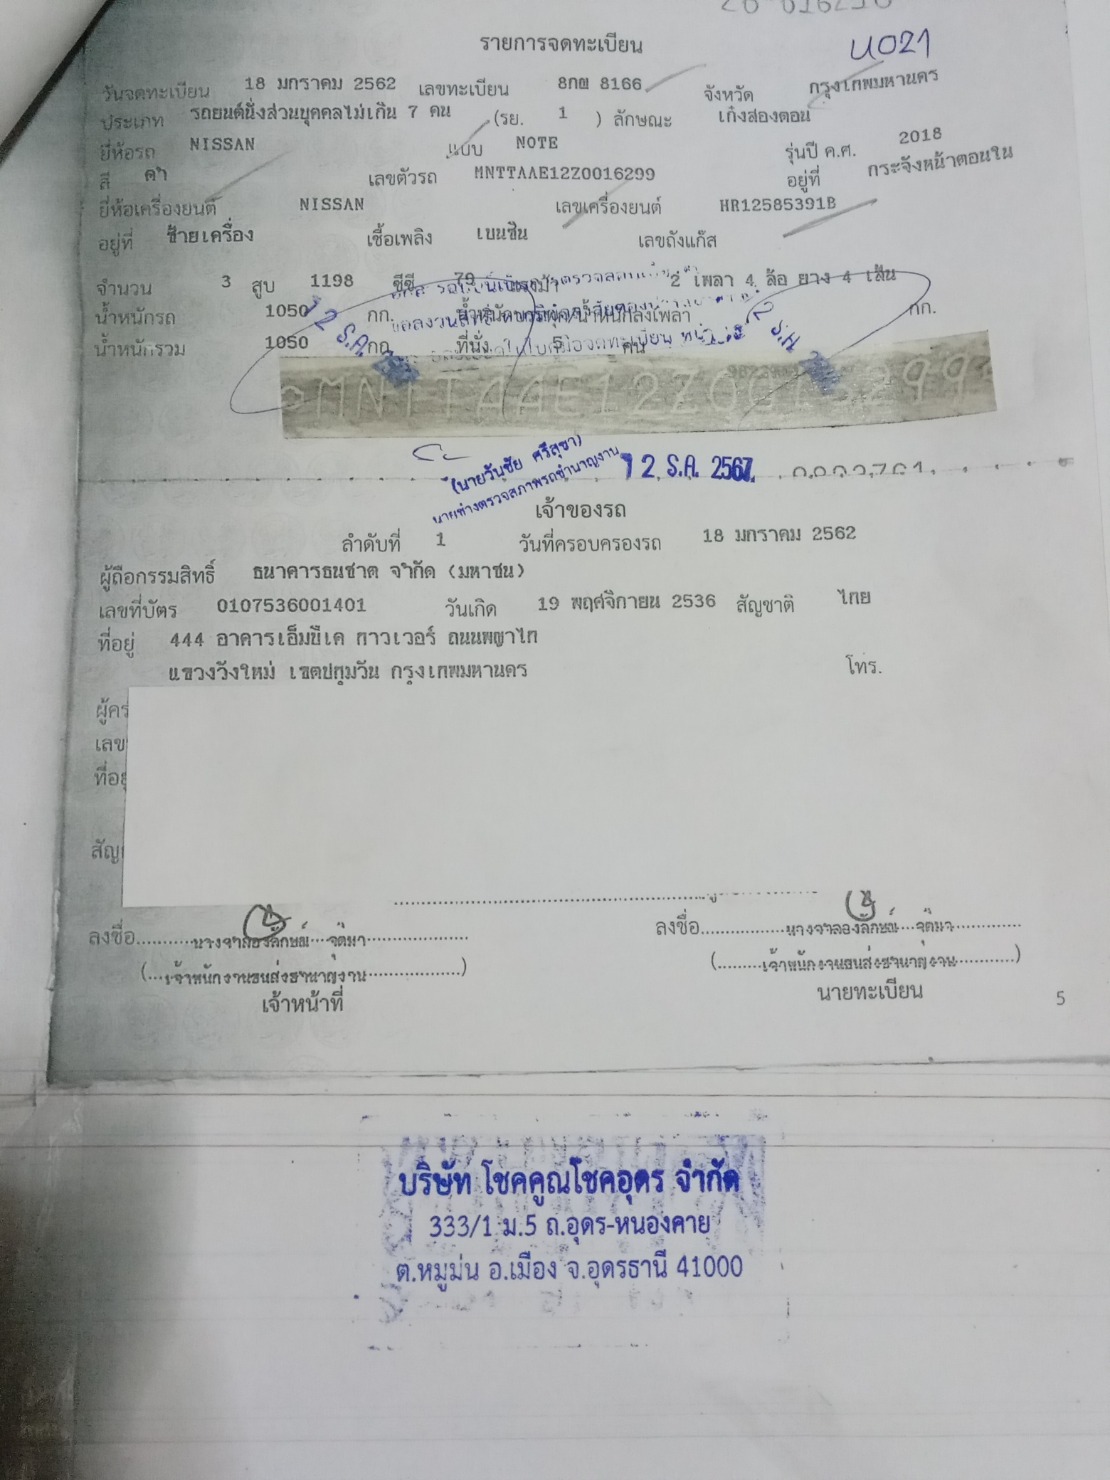 รายการจดทะเบียน
U021
วันจดทะเบียน 18 มกราคม 2562 เลขทะเบียน 8กฒ 8166 จังหวัด กรุงเทพมหานคร
ประเภท รถยนต์นั่งส่วนบุคคลไม่เกิน 7 คน (รย. 1 ) ลักษณะ เก๋งสองตอน
ยี่ห้อรถ NISSAN แบบ NOTE รุ่นปี ค.ศ. 2018
สี ดำ เลขตัวรถ MNTTAAE12Z0016299 อยู่ที่ กระจังหน้าตอนใน
ยี่ห้อเครื่องยนต์ NISSAN เลขเครื่องยนต์ HR12585391B
อยู่ที่ ซ้ายเครื่อง เชื้อเพลิง เบนซิน เลขถังแก๊ส
จำนวน 3 สูบ 1198 ซีซี 79 แรงม้า 2 เพลา 4 ล้อ ยาง 4 เส้น
น้ำหนักรถ 1050 กก. น้ำหนักบรรทุก/น้ำหนักลงเพลา กก.
น้ำหนักรวม 1050 กก. ที่นั่ง 5 คน
12 ธ.ค. 12 ธ.ค.
MNTTAAE12Z0016299
(นายวันชัย ศรีสุขา)
นายช่างตรวจสภาพรถชำนาญงาน
12 ธ.ค. 2567
เจ้าของรถ
ลำดับที่ 1 วันที่ครอบครองรถ 18 มกราคม 2562
ผู้ถือกรรมสิทธิ์ ธนาคารธนชาต จำกัด (มหาชน)
เลขที่บัตร 0107536001401 วันเกิด 19 พฤศจิกายน 2536 สัญชาติ ไทย
ที่อยู่ 444 อาคารเอ็มบีเค ทาวเวอร์ ถนนพญาไท
แขวงวังใหม่ เขตปทุมวัน กรุงเทพมหานคร โทร.
ผู้คร
เลข
ที่อยู่
สัญ
ลงชื่อ นางจำลองลักษณ์ จุติมา ลงชื่อ นางจำลองลักษณ์ จุติมา
(...เจ้าพนักงานขนส่งชำนาญงาน...) (...เจ้าพนักงานขนส่งชำนาญงาน...)
เจ้าหน้าที่ นายทะเบียน
5
บริษัท โชคคูณโชคอุดร จำกัด
333/1 ม.5 ถ.อุดร-หนองคาย
ต.หมูม่น อ.เมือง จ.อุดรธานี 41000